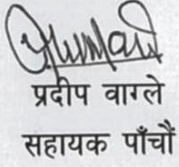 प्रदीप वाग्ले
सहायक पाँचौं